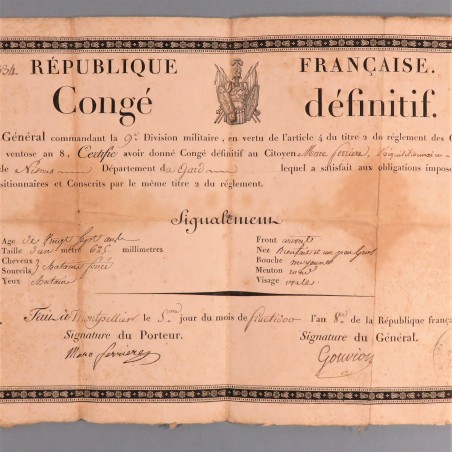 34. RÉPUBLIQUE FRANÇAISE.
Congé définitif.
Général commandant la 9e Division militaire, en vertu de l'article 4 du titre 2 du réglement des C
ventose an 8, Certifie avoir donné Congé définitif au Citoyen Marc Ferriere, Réquisitionnaire
de Nismes Département du Gard lequel a satisfait aux obligations impose
sitionnaires et Conscrits par le même titre 2 du réglement.
Signalement
Age de Vingt Sept ans
Taille d'un mètre 675 millimètres
Cheveux
Sourcils } chatains foncé
Yeux chatains
Front
Nez Bienfait et un peu gros
Bouche moyenne
Menton rond
Visage ovale
Fait à Montpellier le 5.me jour du mois de fructidor l'an 8e de la République franç
Signature du Porteur. Signature du Général.
Marc ferrieres Gouvion